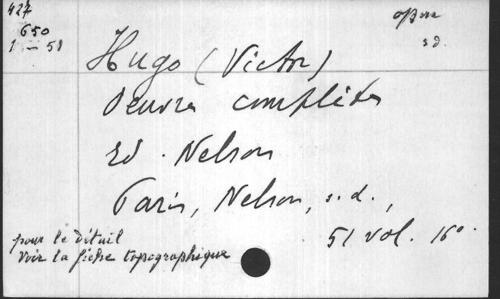 427
650
1 - 51
opera
s.d.
Hugo (Victor)
Oeuvres complètes
Ed. Nelson
Paris, Nelson, s.d.,
51 vol. 16°.
pour le détail
voir la fiche topographique